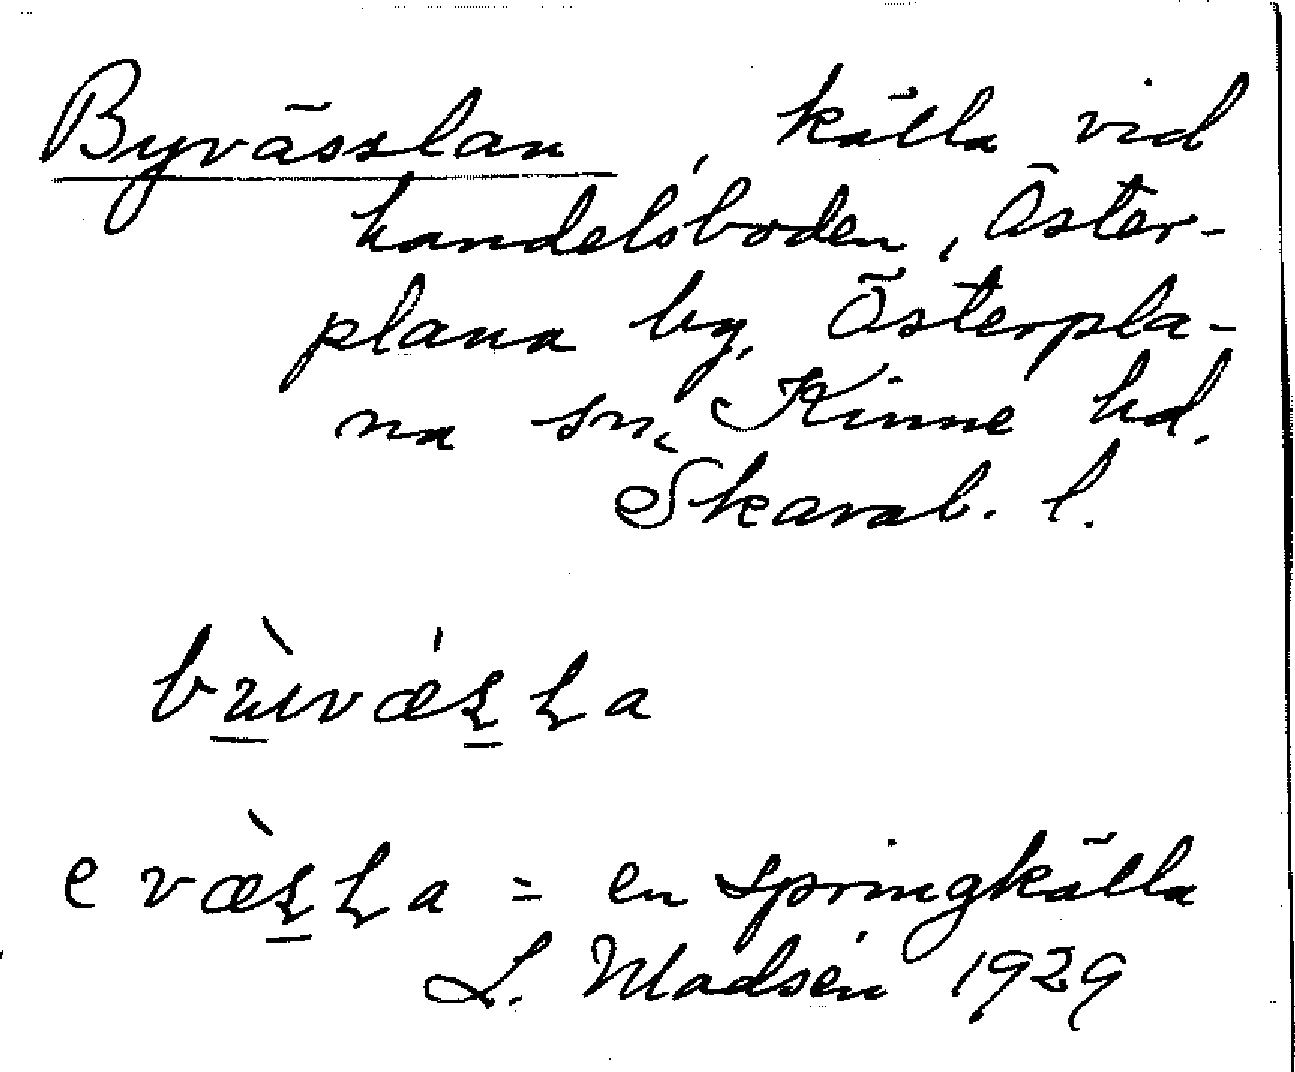 Byvässlan, källa vid
handelsboden, Öster-
plana by, Österpla-
na sn, Kinne hd.
Skarab. l.
= en springkälla
L. Modsén 1929